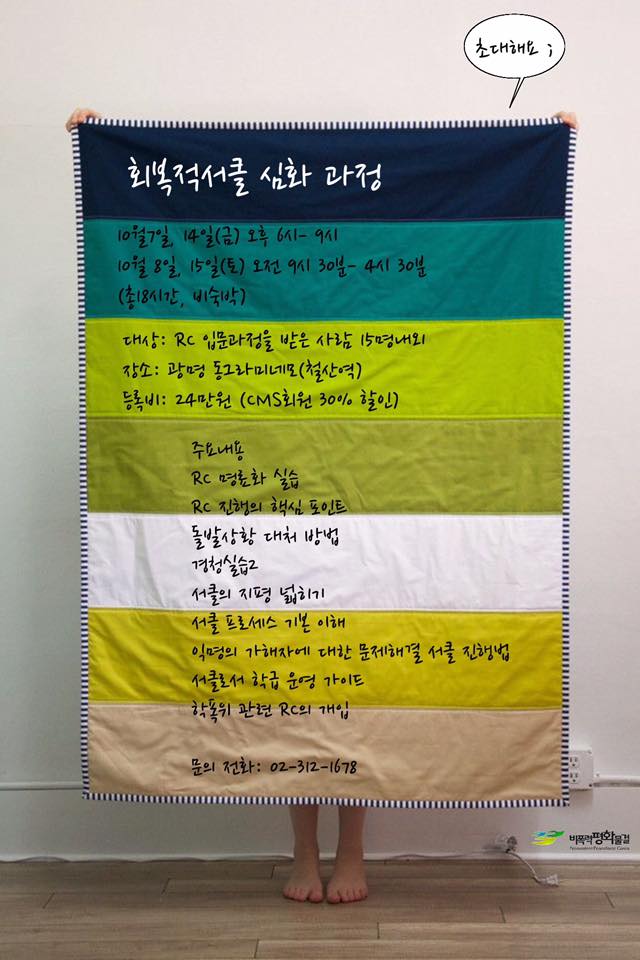 초대해요 ;
회복적서클 심화 과정
10월7일, 14일(금) 오후 6시- 9시
10월 8일, 15일(토) 오전 9시 30분- 4시 30분
(총18시간, 비숙박)
대상: RC 입문과정을 받은 사람 15명내외
장소: 광명 동그라미네모(철산역)
등록비: 24만원 (CMS회원 30% 할인)
주요내용
RC 명료화 실습
RC 진행의 핵심 포인트
돌발상황 대처 방법
경청실습2
서클의 지평 넓히기
서클 프로세스 기본 이해
익명의 가해자에 대한 문제해결 서클 진행법
서클로서 학급 운영 가이드
학폭위 관련 RC의 개입
문의 전화: 02-312-1678
비폭력평화물결